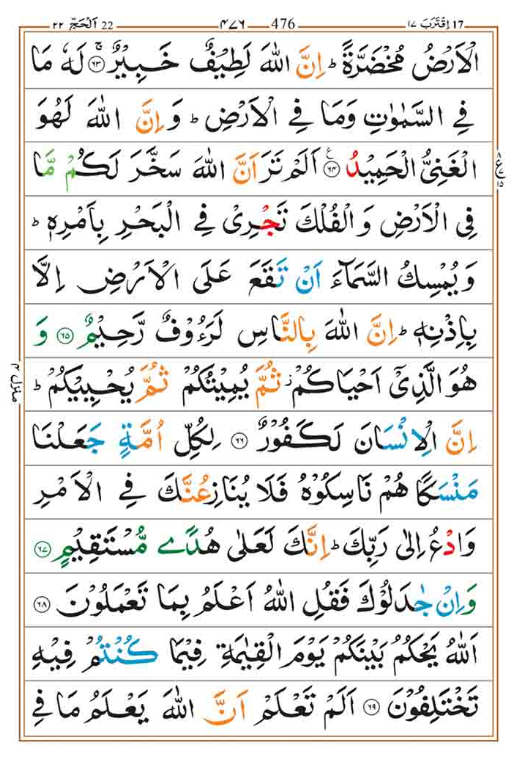 اِقْتَرَبَ ١٧ 17 476 ٤٧٦ اَلْحَجّ ٢٢ 22
الْاَرْضُ مُخْضَرَّةً ؕ اِنَّ اللّٰهَ لَطِيْفٌ خَبِيْرٌ ۚ‏﴿۶۳﴾ لَهٗ مَا
فِى السَّمٰوٰتِ وَمَا فِى الْاَرْضِ ؕ وَاِنَّ اللّٰهَ لَهُوَ
الْغَنِىُّ الْحَمِيْدُ ﴿۶۴﴾ اَلَمْ تَرَ اَنَّ اللّٰهَ سَخَّرَ لَكُمْ مَّا
فِى الْاَرْضِ وَالْفُلْكَ تَجْرِىْ فِى الْبَحْرِ بِاَمْرِهٖ ؕ
وَيُمْسِكُ السَّمَآءَ اَنْ تَقَعَ عَلَى الْاَرْضِ اِلَّا
بِاِذْنِهٖ ؕ اِنَّ اللّٰهَ بِالنَّاسِ لَرَءُوْفٌ رَّحِيْمٌ ﴿۶۵﴾ وَ
هُوَ الَّذِىْۤ اَحْيَاكُمْ ؗ ثُمَّ يُمِيْتُكُمْ ثُمَّ يُحْيِيْكُمْ ؕ
اِنَّ الْاِنْسَانَ لَـكَفُوْرٌ ﴿۶۶﴾ لِكُلِّ اُمَّةٍ جَعَلْنَا
مَنْسَكًا هُمْ نَاسِكُوْهُ فَلَا يُنَازِعُنَّكَ فِى الْاَمْرِ
وَادْعُ اِلٰى رَبِّكَ ؕ اِنَّكَ لَعَلٰى هُدًى مُّسْتَقِيْمٍ ﴿۶۷﴾
وَاِنْ جٰدَلُوْكَ فَقُلِ اللّٰهُ اَعْلَمُ بِمَا تَعْمَلُوْنَ ﴿۶۸﴾
اَللّٰهُ يَحْكُمُ بَيْنَكُمْ يَوْمَ الْقِيٰمَةِ فِيْمَا كُنْتُمْ فِيْهِ
تَخْتَلِفُوْنَ ﴿۶۹﴾ اَلَمْ تَعْلَمْ اَنَّ اللّٰهَ يَعْلَمُ مَا فِى
منزل ۴